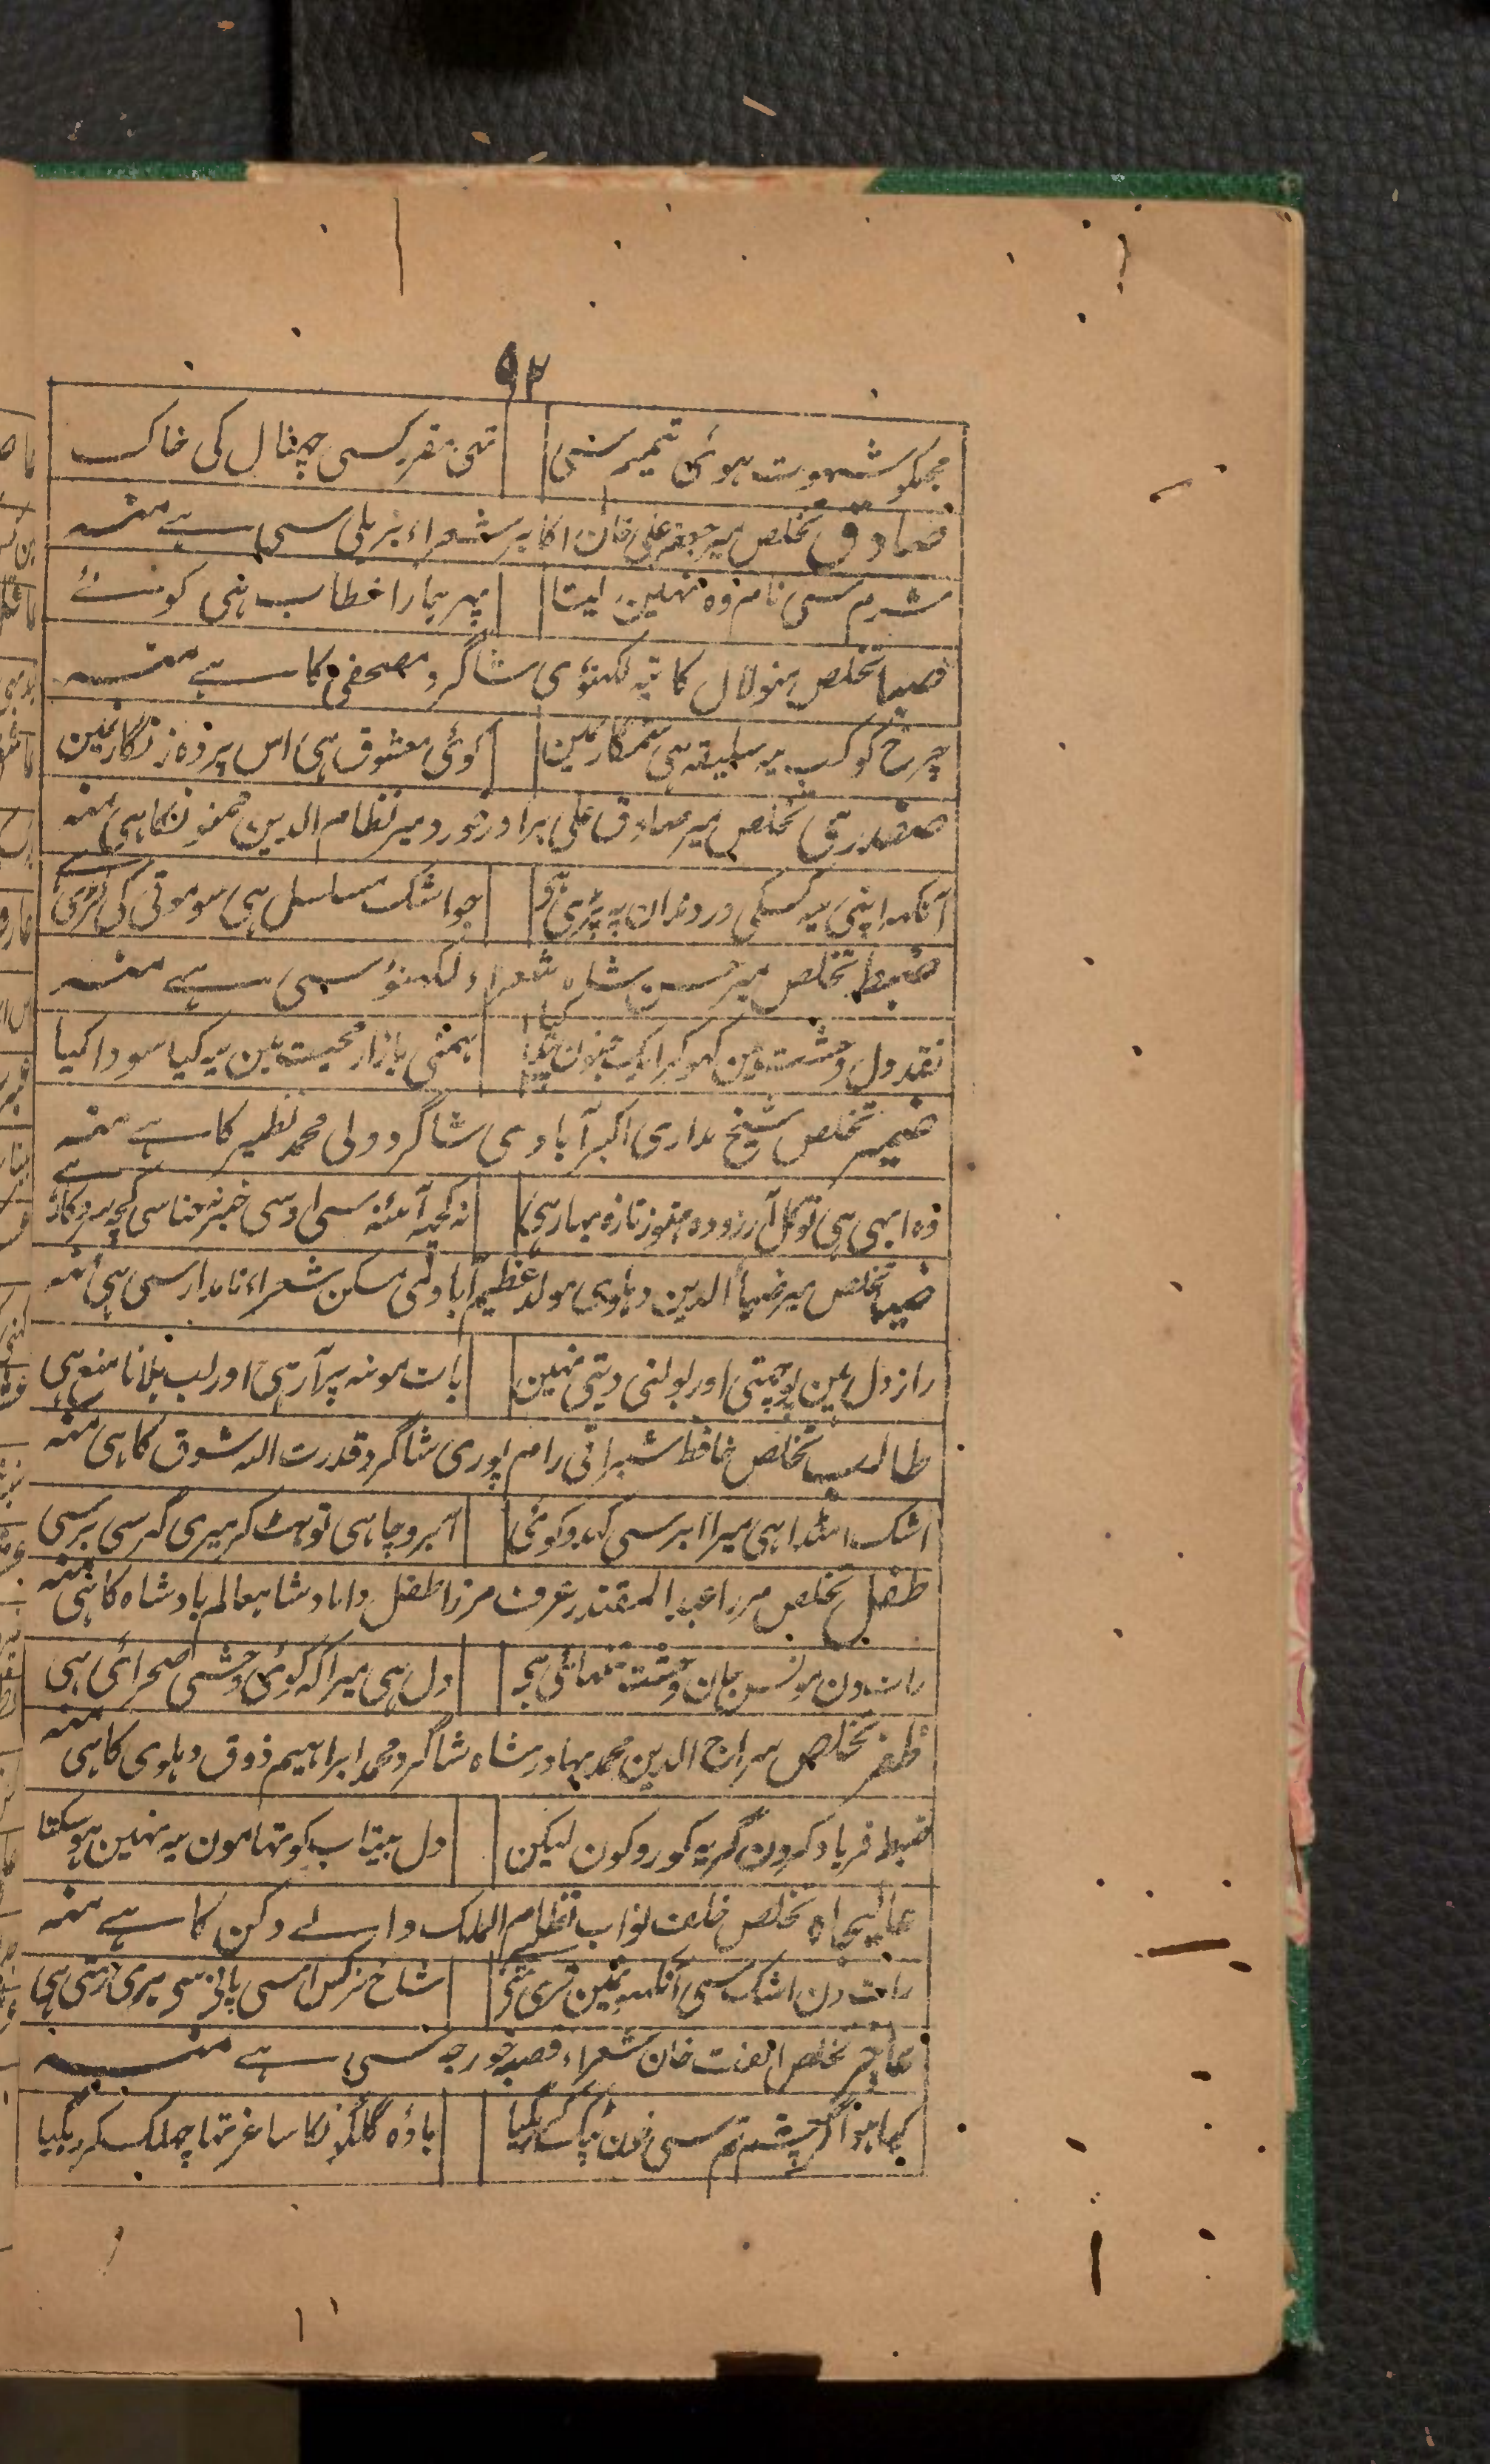 ۹۲
مجکو شہوت ہوئی تیمم سنی تہی مقرر کسی چھنال کی خاک
صادق تخلص میر جعفر علی خان اکابر شعراء بریلی سی ہے منہ
شرم سی نام وہ نہین لیتا پہر ہمارا خطاب ہی کوئے
صبا تخلص منولال کاتیہ لکہنوی شاگرد مصحفی کا ہے منہ
چرخ کو کب یہ سلیقہ ہی ستمگاریمین کوئی معشوق ہی اس پردہ زنگاریمین
صفدری تخلص میر صادق علی برادر خورد میر نظام الدین ممنونکا ہی منہ
آنکہہ اپنی یہ کسکی در دندان پہ پڑی ہے جو اشک مسلسل ہی سو موتی کی لڑی ہے
ضبط تخلص میر حسن شاہ شعراء لکہنؤ سی ہے منہ
نقد دل وحشت مین کہو کر ایک جنون پیدا کیا ہمنی بازار محبت مین یہ کیا سودا کیا
ضمیر تخلص شیخ مداری اکبر آبادی شاگرد ولی محمد نظیر کا ہے منہ
وہ ابہی ہی نو گل آرزو وہ ہنوز تازہ بہار ہی نہ کچہہ آئنہ سی اوسی خبر نہ حنا سی کچہہ سروکار ہے
ضیا تخلص میر ضیا الدین دہلوی مولد عظیم آباد مسکن شعراء نامدار سی ہی منہ
راز دل ہین پوچہتی اور بولنی دیتی نہین بات مونہ پر آ رہی اور لب ہلانا منع ہی
طالب تخلص حافظ شبراتی رام پوری شاگرد قدرت اللہ شوق کا ہی منہ
اشک امنڈا ہی میرا ابر سی کہدو کوئی آبرو چاہی تو ہٹ کر میری گہر سی برسی
طفل تخلص مرزا عبد المقتدر عرف مرزا طفل داماد شاہعالم بادشاہ کا ہی منہ
رات دن مونس جان وحشت تنہائی ہی دل ہی میرا کہ کوئی وحشی صحرائی ہی
ظفر تخلص سراج الدین محمد بہادر شاہ شاگرد محمد ابراہیم ذوق دہلوی کا ہی منہ
ضبط فریاد کرون گریہ کو روکون لیکن دل بیتاب کو تہامون یہ نہین ہو سکتا
عالیجاہ تخلص خلف نواب نظام الملک والے دکن کا ہے منہ
رات دن اشک سی آنکہو نمین تری رہتی ہے شاخ نرگس اسی پانی سی ہری رہتی ہی
عاجز تخلص الفت خان شعراء قصبہ خورجہ سی ہے منہ
کیا ہوا گر چشم تر سی خون ٹپک کر رہگیا بادہ گلگونکا ساغر تہا چہلک کر رہگیا